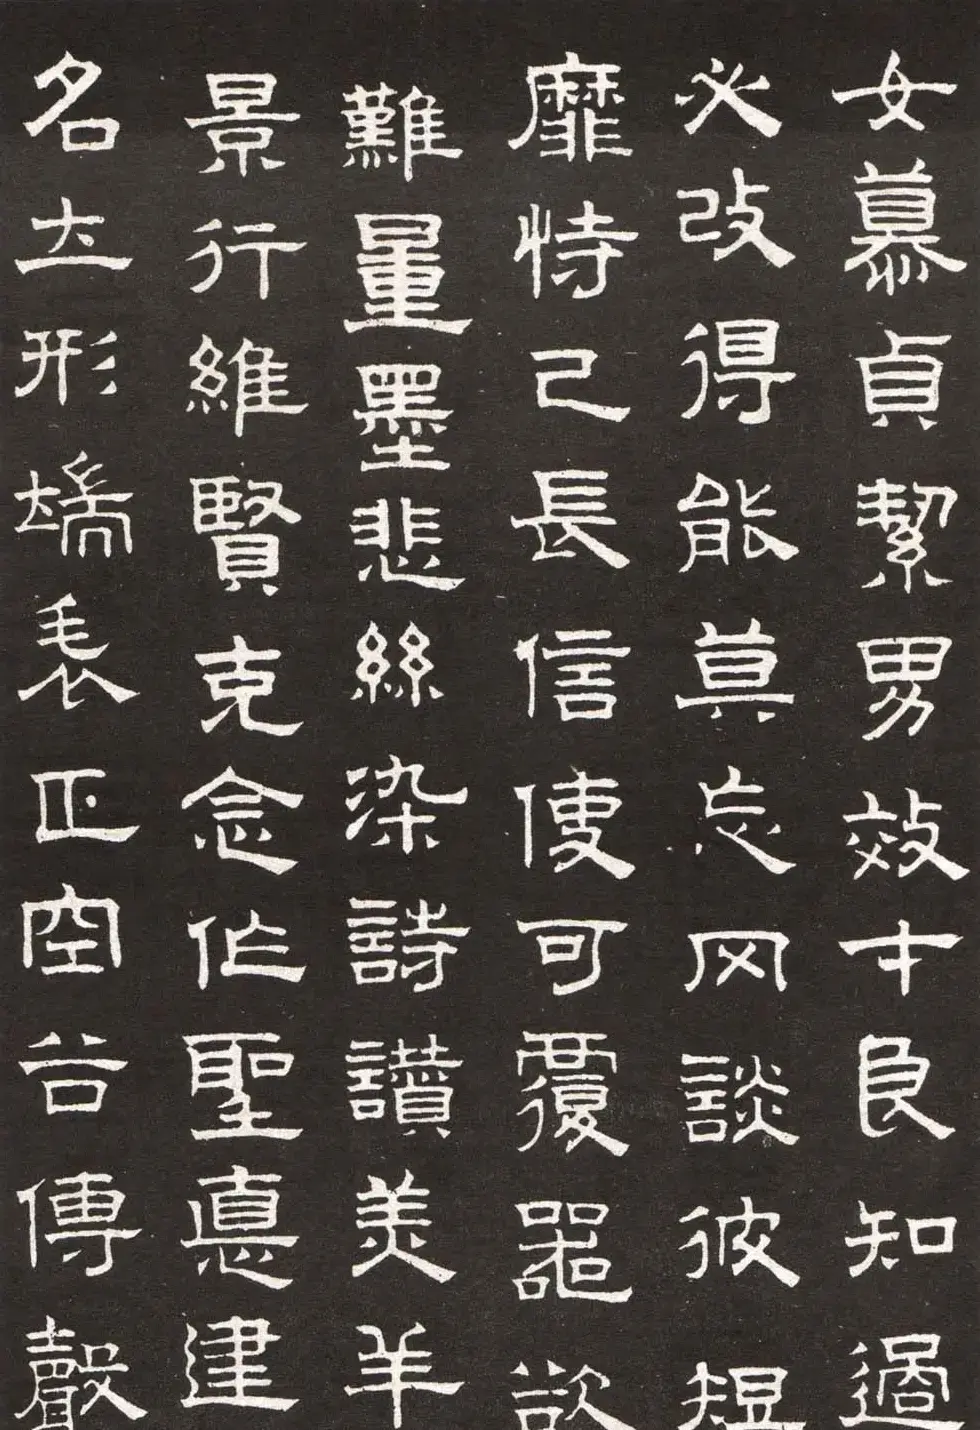 女慕貞絜男效才良知過
必改得能莫忘罔談彼短
靡恃己長信使可覆器欲
難量墨悲絲染詩讃羔羊
景行維賢克念作聖悳建
名立形端表正空谷傳聲